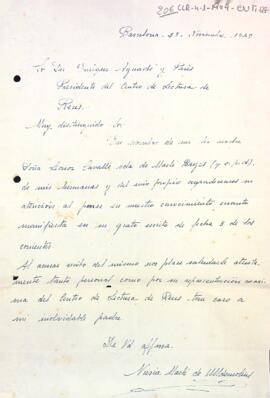 Barcelona, 23 Noviembre 1949
Sr Don Enrique Aguadé y Parés
Presidente del Centro de Lectura de
Reus.
Muy distinguido Sr
En nombre de mi madre
Doña Leonor Lavallé vda de Martí
de mis hermanas y del mio propio agradecemos su
atención al poner en nuestro conocimiento cuanto
manifiesta en su grata escrito de fecha 8 de los
corrientes.
Al acusar recibo del mismo nos place saludarle atenta-
mente tanto personal como por su representación
del Centro de Lectura de Reus tan caro a
mi inolvidable padre.
De Vd affma.
Nuria Martí de